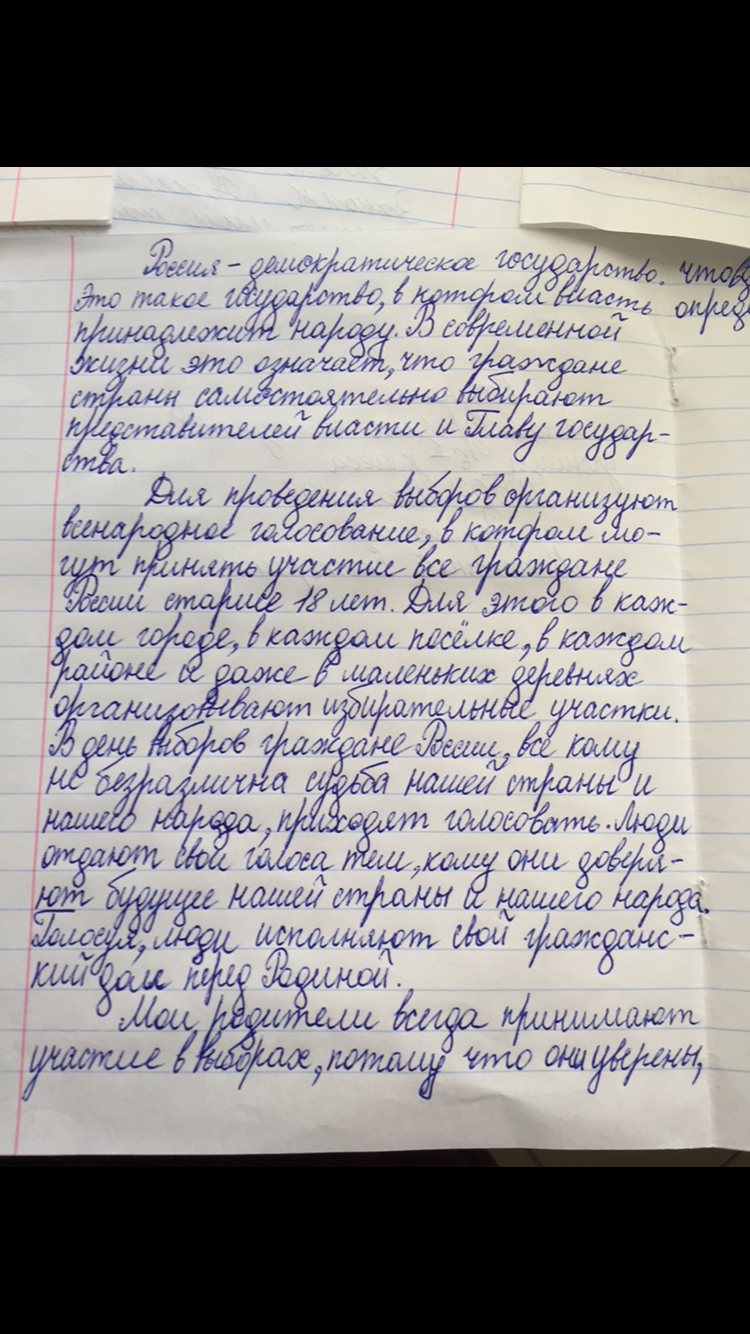 Россия – демократическое государство.
Это такое государство, в котором власть
принадлежит народу. В современной
жизни это означает, что граждане
страны самостоятельно выбирают
представителей власти и Главу государ-
ства.
Для проведения выборов организуют
всенародное голосование, в котором мо-
гут принять участие все граждане
России старше 18 лет. Для этого в каж-
дом городе, в каждом посёлке, в каждом
районе и даже в маленьких деревнях
организовывают избирательные участки.
В день выборов граждане России, все кому
не безразлична судьба нашей страны и
нашего народа, приходят голосовать. Люди
отдают свои голоса тем, кому они доверя-
ют будущее нашей страны и нашего народа.
Голосуя, люди исполняют свой гражданс-
кий долг перед Родиной.
Мои родители всегда принимают
участие в выборах, потому что они уверены,